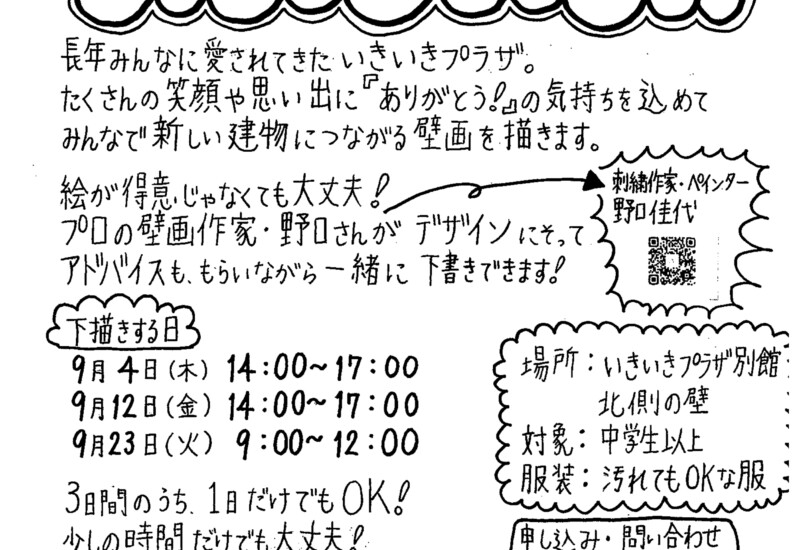 長年みんなに愛されてきた いきいきプラザ。
たくさんの笑顔や思い出に『ありがとう!』の気持ちを込めて
みんなで新しい建物につながる壁画を描きます。
絵が得意じゃなくても大丈夫!
プロの壁画作家・野口さんが デザインにそって
アドバイスも、もらいながら一緒に 下書きできます!
刺繍作家・ペインター
野口佳代
下描きする日
9月 4日(木) 14:00~17:00
9月12日(金) 14:00~17:00
9月23日(火) 9:00~12:00
3日間のうち、1日だけでもOK!
少しの時間だけでも大丈夫!
場所:いきいきプラザ別館
北側の壁
対象:中学生以上
服装:汚れてもOKな服
申し込み・問い合わせ